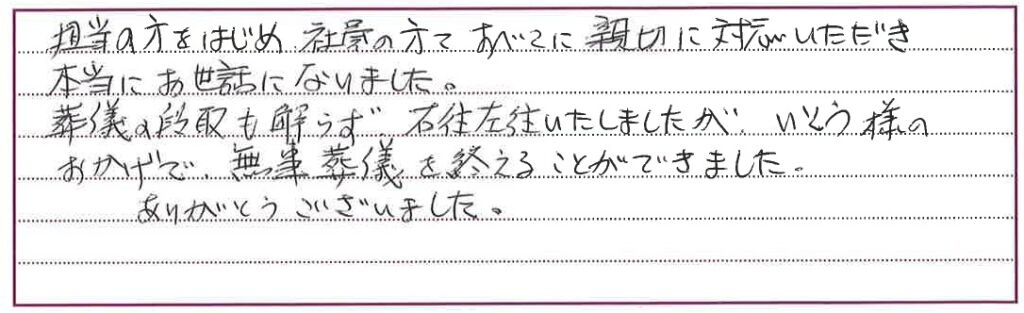 担当の方をはじめ 社員の方て すべてに 親切に対応いただき
本当にお世話になりました。
葬儀の段取も解らず、右往左往いたしましたが、いとう様の
おかげで、無事葬儀を終えることができました。
ありがとうございました。